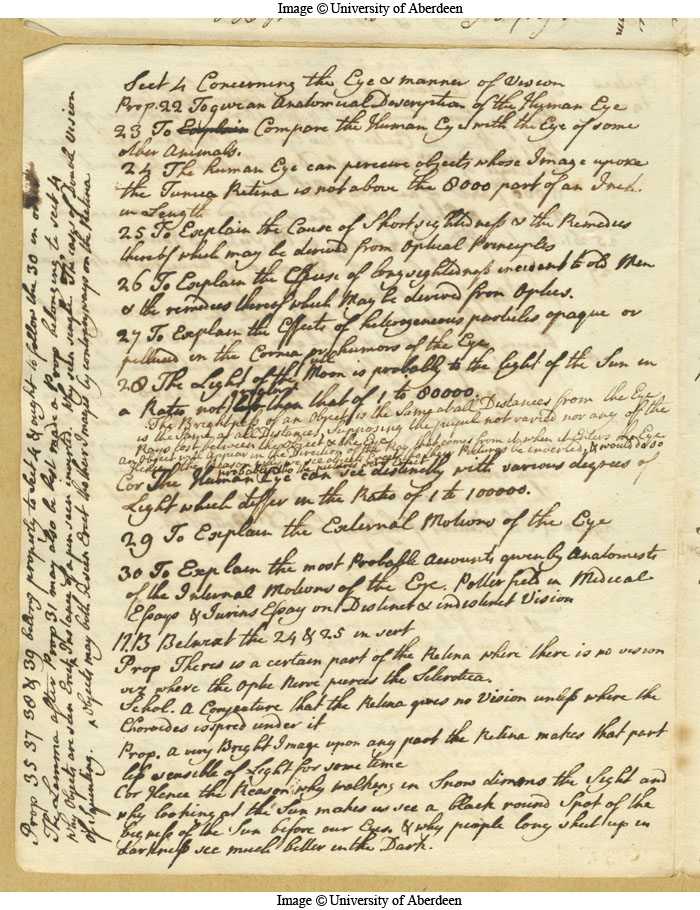 Image © University of Aberdeen
Sect 4 Concerning the Eye & manner of Vision
Prop. 22 To give an Anatomical Description of the Human Eye
23 To Explain Compare the Human Eye with the Eye of some
other Animals.
24 The human Eye can perceive objects whose Image upon
the Tunica Retina is not above the 8000 part of an Inch
in Length
25 To Explain the Cause of Shortsightedness & the Remedies
thereof which may be derived from Optical Principles
26 To Explain the Cause of longsightedness incident to old Men
& the remedies thereof which May be derived from Optics.
27 To Explain the Effects of heterogeneous particles opaque or
pellucid in the Cornea or humors of the Eye
28 The Light of the Moon is probably to the light of the Sun in
a Ratio not less than that of 1 to 80000.
The Brightness of an Object is the Same at all Distances from the Eye
is the Same at all Distances, Supposing the pupil not varied nor any of the
Rays lost between the Object & the Eye
an Object will appear in the Direction of the Ray that comes from it when it Enters the Eye
Hence the reason why we see objects erect tho their Pictures be inverted, & would do so
tho the pictures were Erect
Cor The Human Eye can see distinctly with various degrees of
Light which differ in the Ratio of 1 to 100000.
29 To Explain the External Motions of the Eye
30 To Explain the most Probable Accounts given by Anatomists
of the Internal Motions of the Eye. Potterfield in Medical
Essays & Jurins Essay on Distinct & indistinct Vision
N.B Betwixt the 24 & 25 insert
Prop Theres is a certain part of the Retina where there is no vision
viz where the Optic Nerve pierces the Sclerotica.
Schol. A Conjecture that the Retina gives no Vision unless where the
Choroides is spred under it
Prop. a very Bright Image upon any part the Retina makes that part
less sensible of Light for some time
Cor Hence the Reason why walking in Snow dimms the Sight and
why looking at the Sun makes us see a black round Spot of the
bigness of the Sun before our Eyes. & why people long shut up in
darkness see much better in the Dark.
Prop 35 37 38 & 39 belong properly to Sect 4 & ought to follow the 30 in order
The Lemma after Prop 31 may also be last made a Prop belonging to sect 4
why Objects are seen Erect. Instance of a pin seen inverted. Why seen single. The case of Double Vision
of Squinting. Objects may both be seen Erect tho their Images ly contrary ways on the Retina
Image © University of Aberdeen